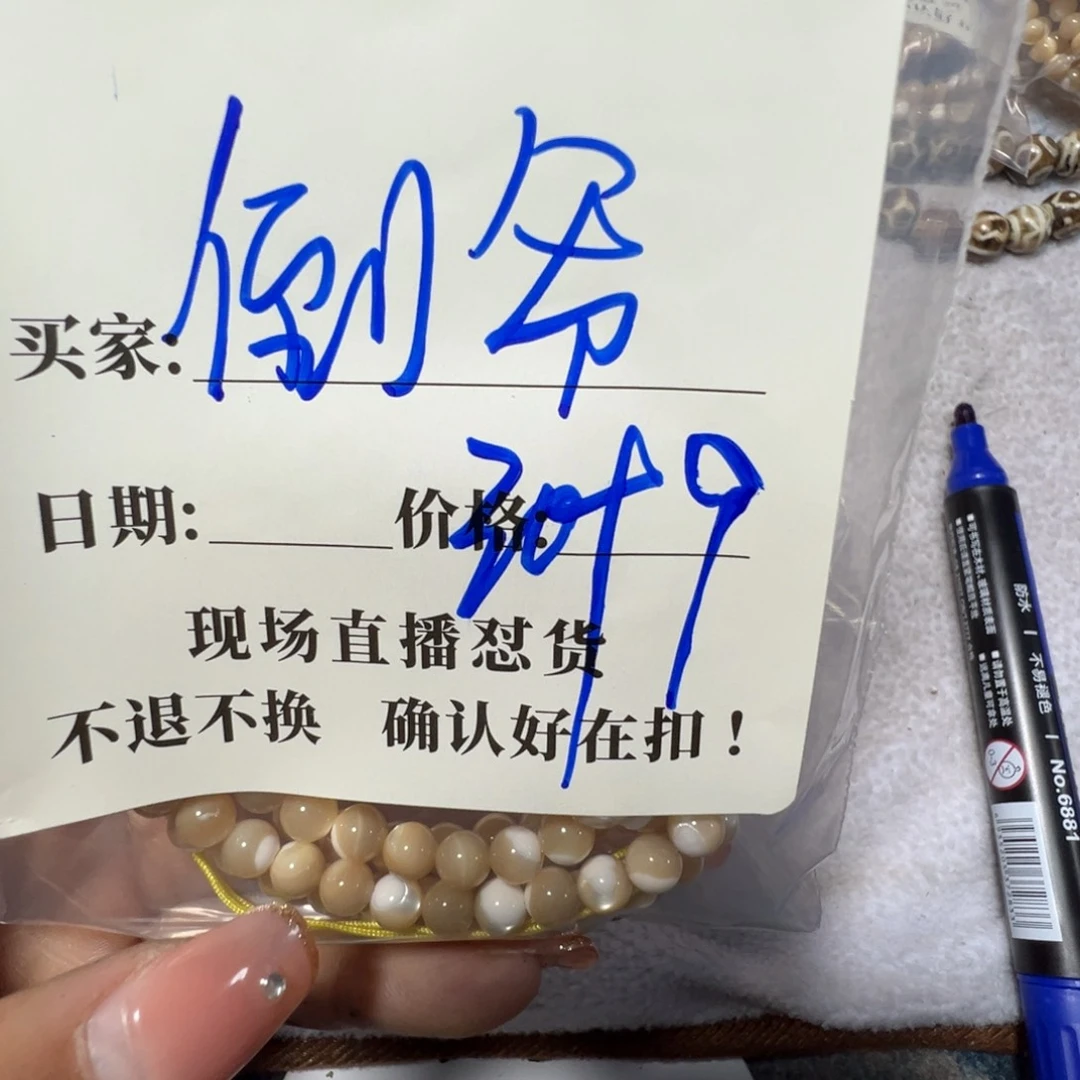 买家: 倒爷
日期: 价格:
现场直播怼货
不退不换 确认好在扣！
防水 | 不易褪色 | No.6881